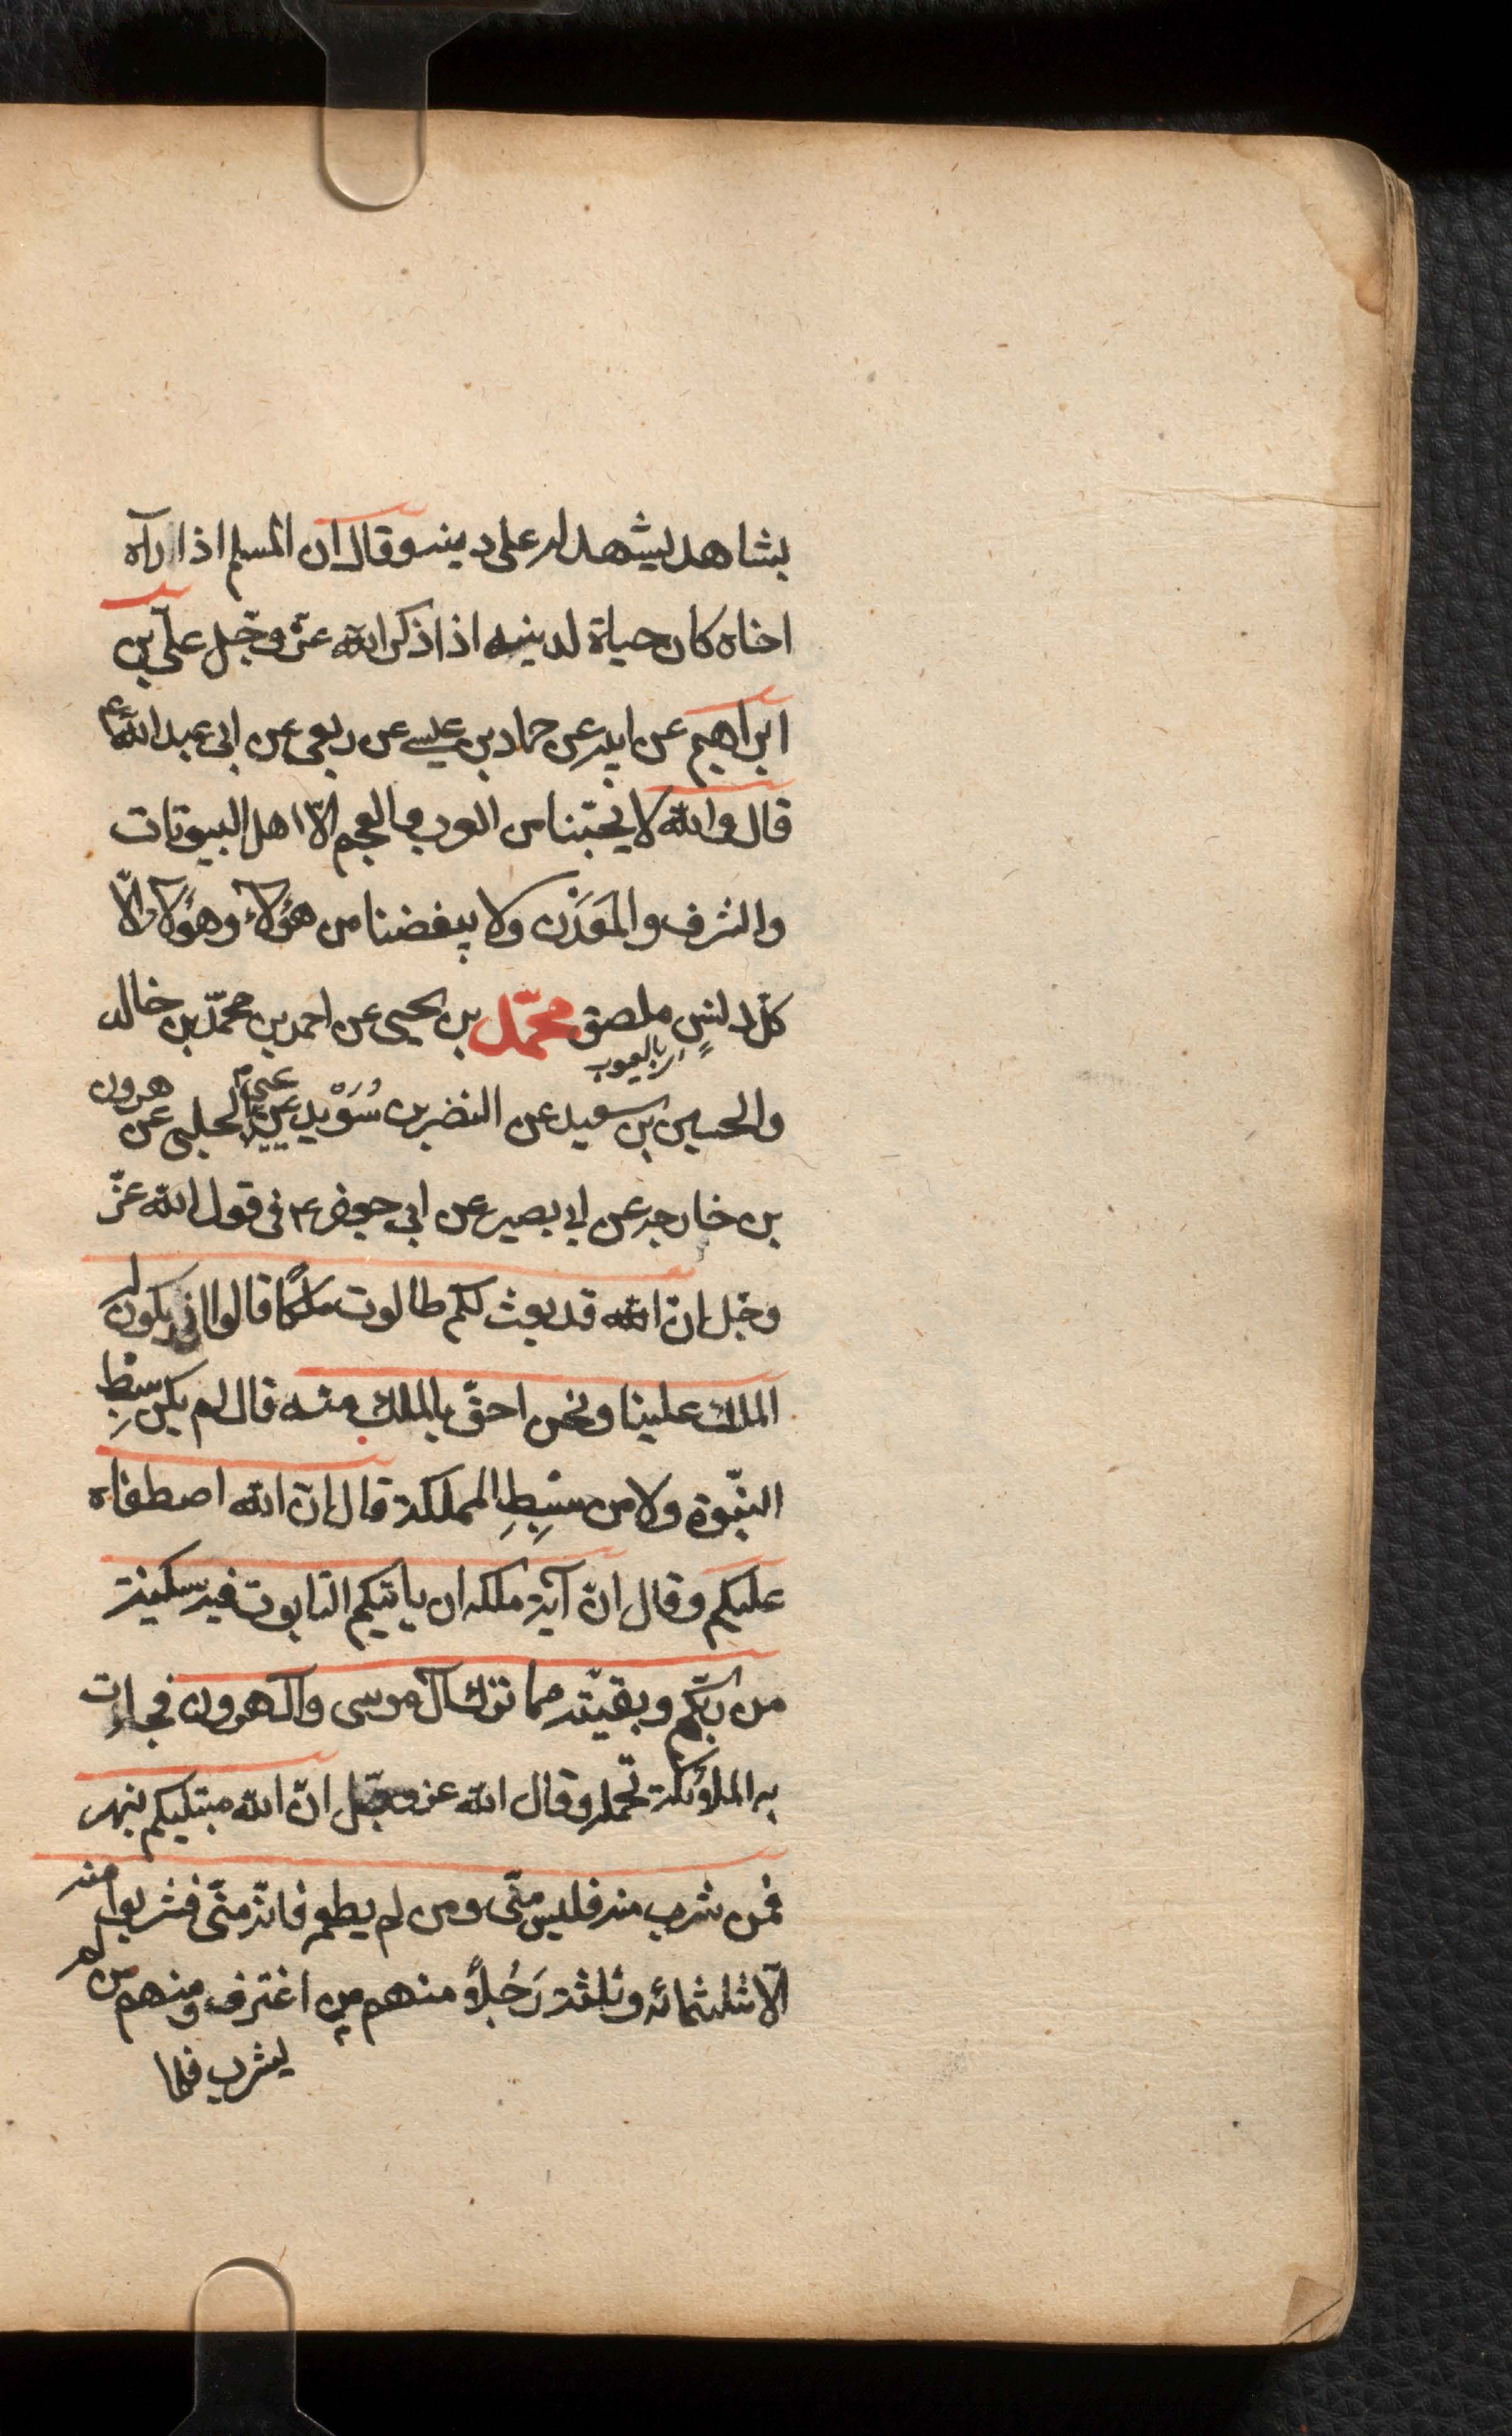 بشاهد ليشهد له على دينه وقال ان المسلم اذا رآه
اخاه كان حياة لدينه اذا ذكر الله عزّ وجّل علّي بن
ابراهيم عن ابيه عن حماد بن عيسى عن ربعى عن ابى عبد الله ع
قال والله لا يحبّنا من العرب والعجم الّا اهل البيوتات
والشرف والمَعدَن ولا يبغضنا من هؤلاء وهؤلاء الّا
كلّ دنس ملصق محمّد بن يحيى عن احمد بن محمّد بن خالد
بالعيوب
والحسين بن سعيد عن النضر بن سُوَيد عن يحيى الحلبى عن هرون
بن خارجه عن ابى بصير عن ابى جعفر ع فى قول الله عزّ
وجّل انّ الله قد بعث لكم طالوت ملكًا قالوا انى يكون له
الملك علينا ونحن احقّ بالملك منه قال لم يكن سبطِ
النبّوة ولا من سبِطِ المملكة قال انّ الله اصطفاه
عليكم وقال انّ آية ملكه ان ياتيكم التابوت فيه سكينة
من ربّكم وبقيّة مما ترك آل موسى وآل هرون فجاءت
به الملائكة تحمله وقال الله عز وجّل انّ الله مبتليكم بنهر
فمن شرب منه فليس منّى ومن لم يطعمه فانّه منّى فشربوا منه
الّا ثلثمائه وثلثة رَجُلاً منهم من اغترف ومنهم من لم
يشرب فلما